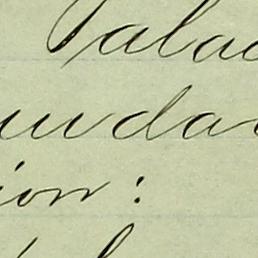 Palac
undar
ion: